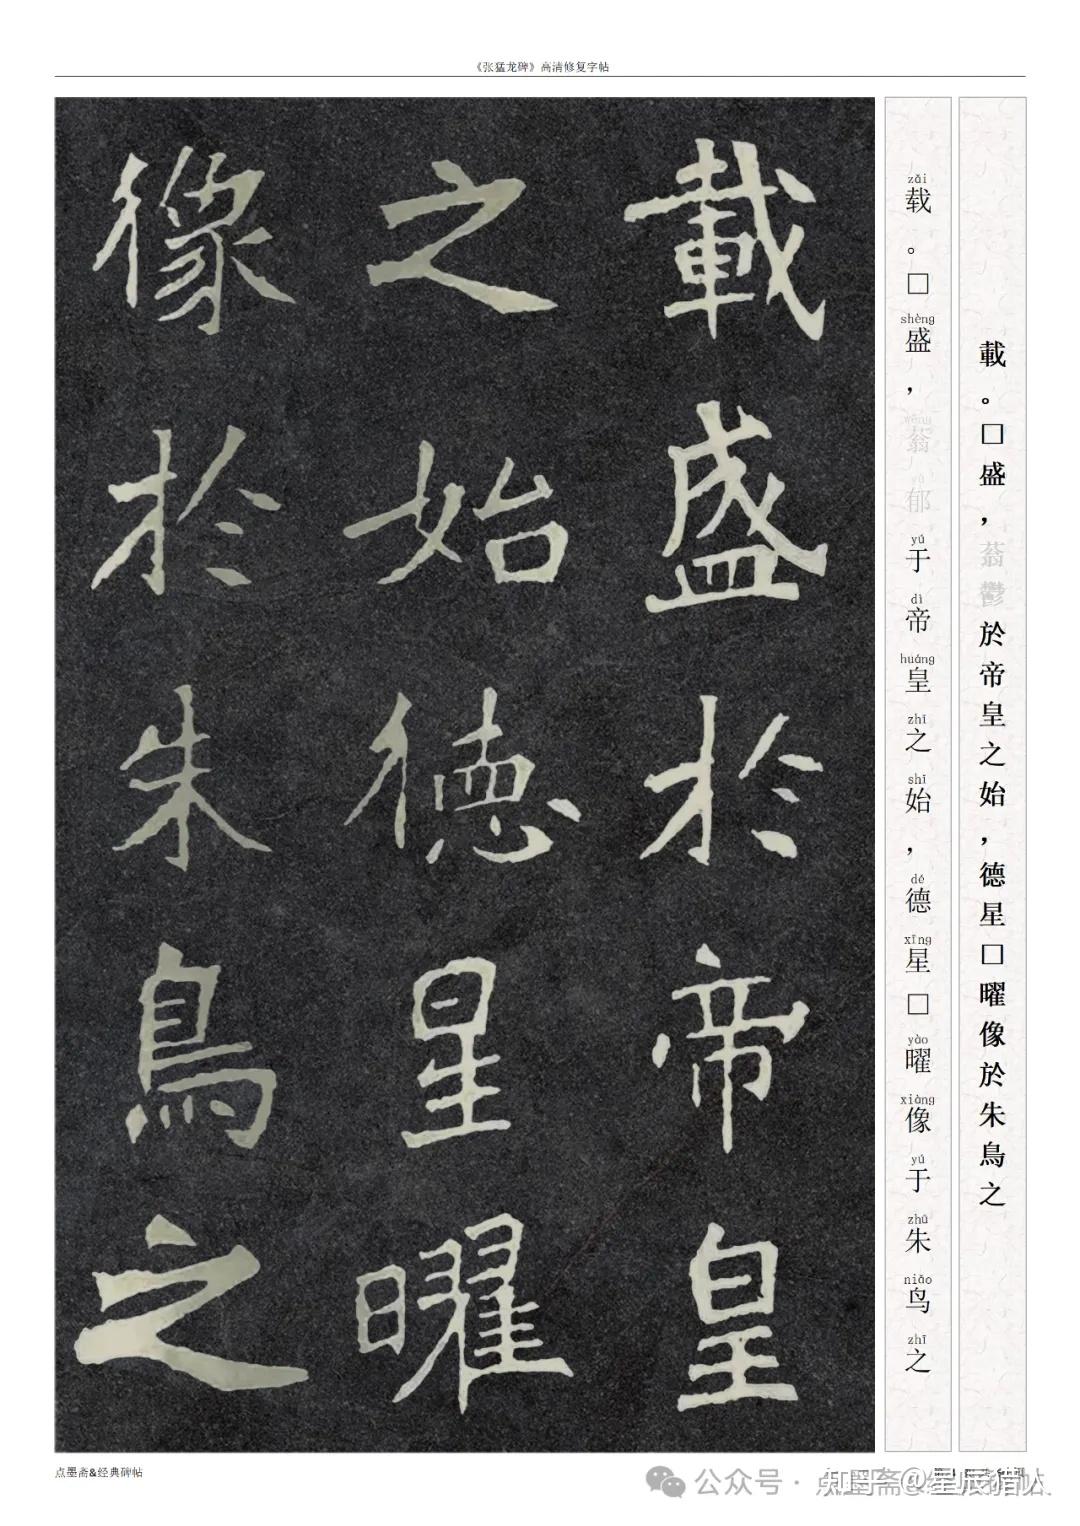 《张猛龙碑》高清修复字帖
載盛於帝皇
之始德星曜
像於朱鳥之
zǎi shèng wěng yù yú dì huáng zhī shǐ dé xīng yào xiàng yú zhū niǎo zhī
载。□盛，蓊郁于帝皇之始，德星□曜像于朱鸟之
載。□盛，蓊鬱於帝皇之始，德星□曜像於朱鳥之
点墨斋&经典碑帖
公众号·点墨斋
知乎 @星辰猎人